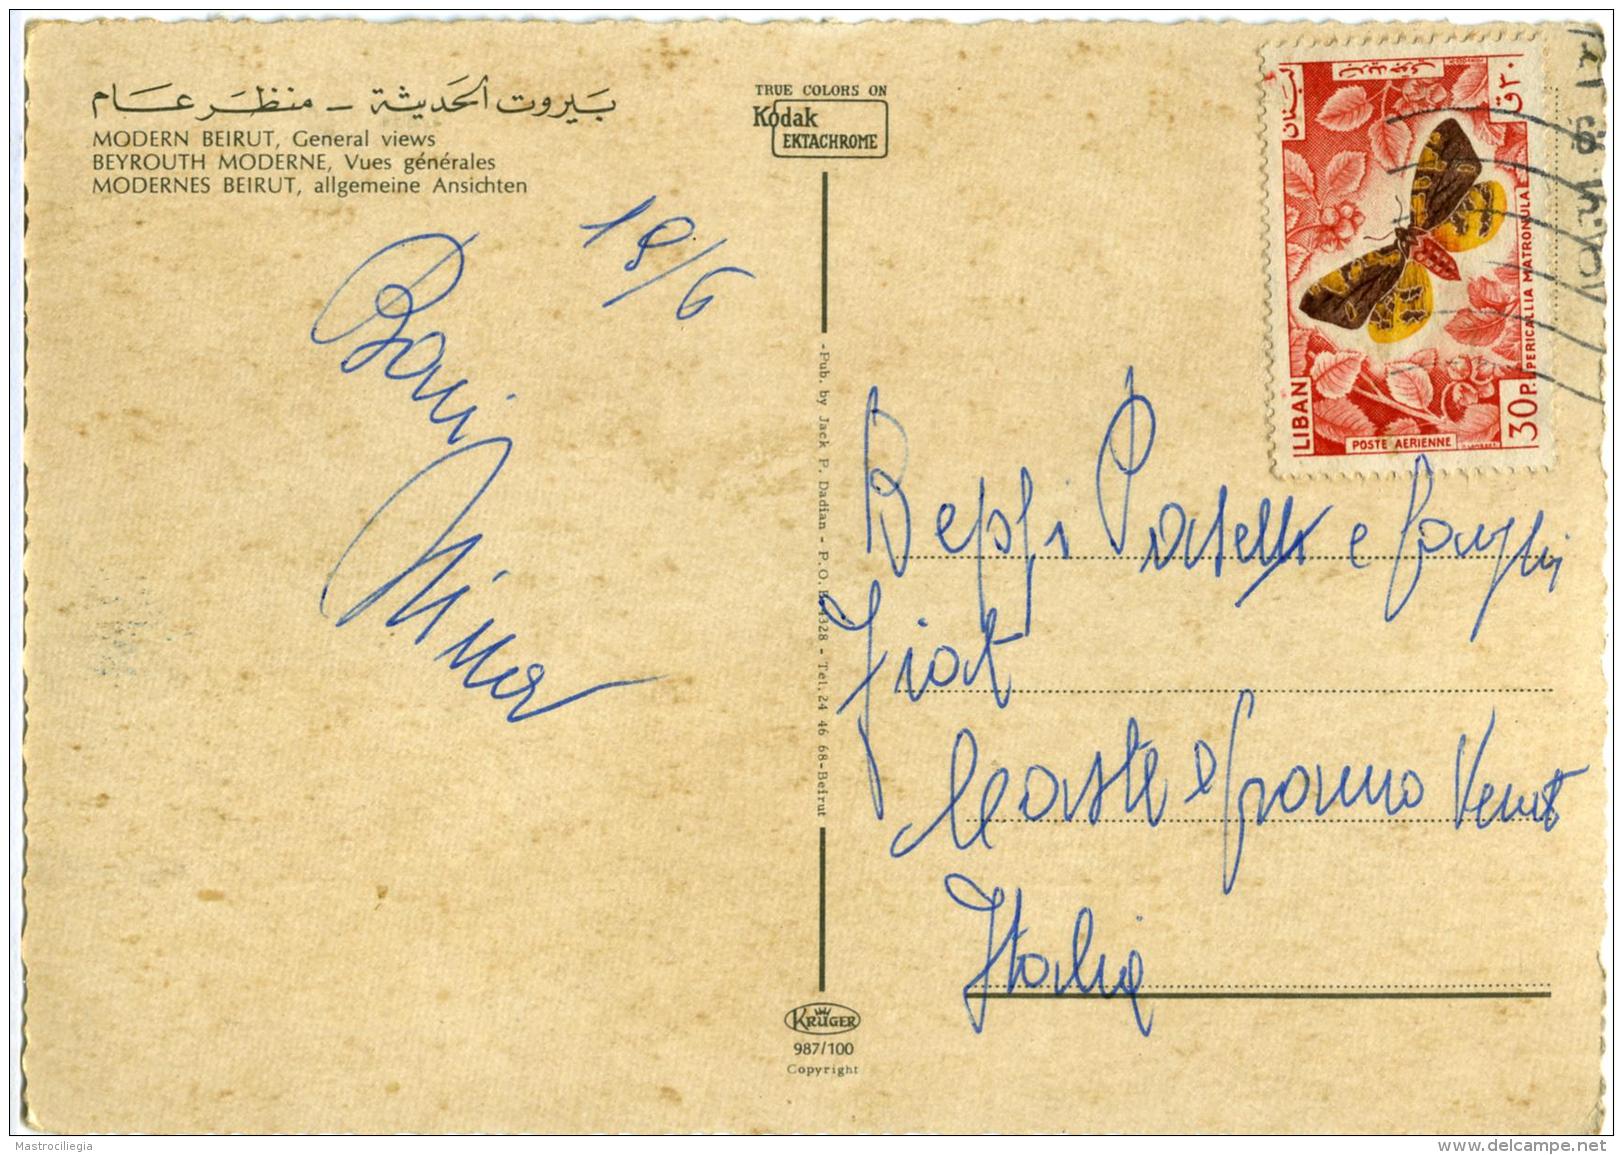 بيروت الحديثة - منظر عام
MODERN BEIRUT, General views
BEYROUTH MODERNE, Vues générales
MODERNES BEIRUT, allgemeine Ansichten
TRUE COLORS ON
Kodak
EKTACHROME
لبنان
٣٠ق
LIBAN
30P.
POSTE AERIENNE
PERICALLIA MATRONULAE
19/6
Bani
Nina
-Pub. by Jack P. Dadian - P.O.B. 4328 - Tel. 24 46 68-Beirut
Beppi e
Fiat
Castelfranco Veneto
Italia
KRÜGER
987/100
Copyright
Mastrociliegia
delcampe.net